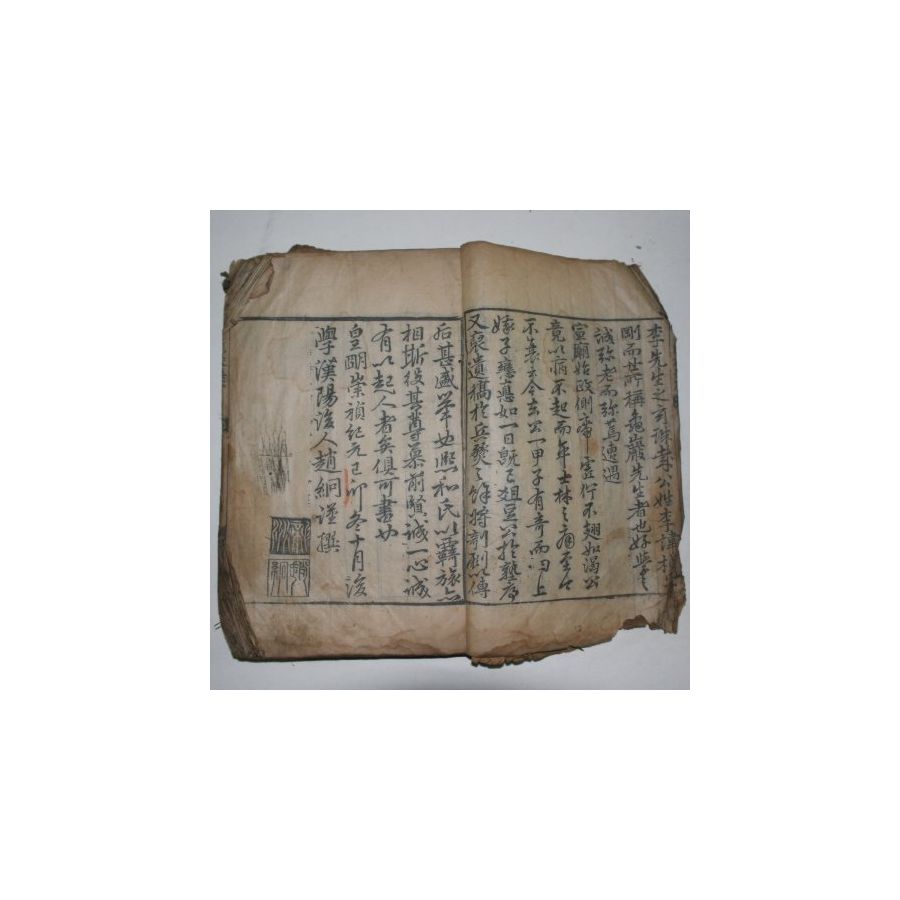 李先生之言詠李公姓李諱楨
剛而世所稱龜巖先生者也好學之
誠弥老而弥篤遭遇
宣廟始政側席 佇不翅如渴公
竟以病不起而卒士林之痛至今
不已今去公一甲子有奇而向上
子戀如一日旣已俎豆公於塾序
又裒遺稿於兵燹之餘將剞劂以傳
后甚盛擧也熙和氏以羇旅亦
相斯役其尊慕前賢誠一心誠
有以起人者矣俱可書也
皇明崇禎紀元己卯冬十月後
學漢陽後人趙絅謹撰